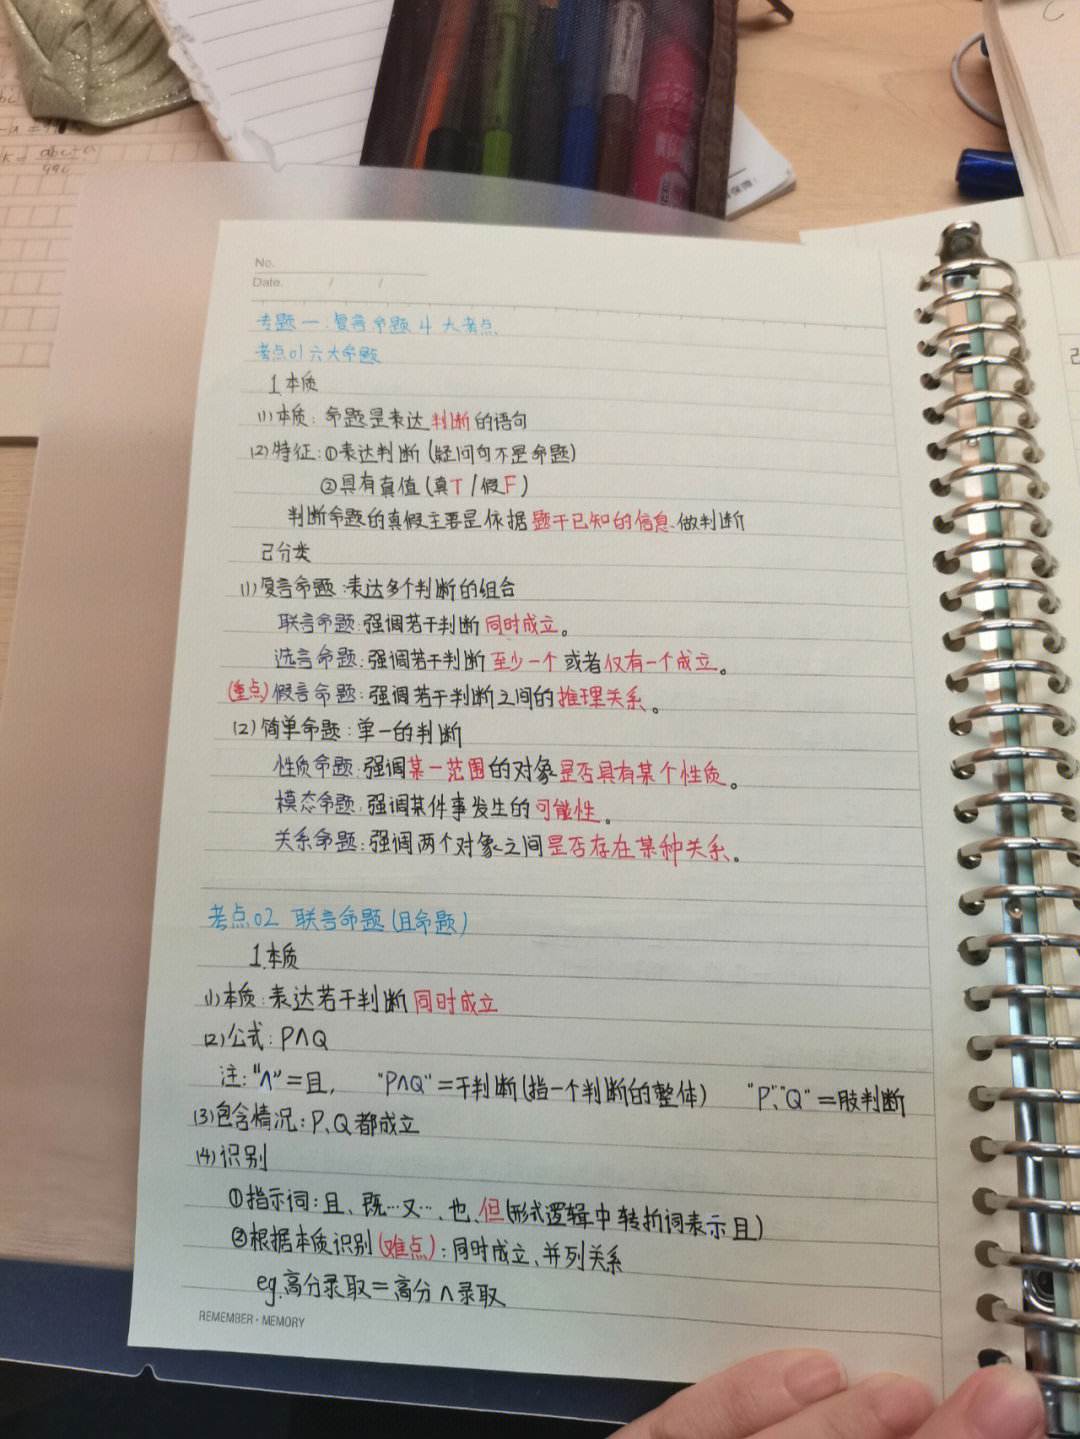 No.
Date. / /
专题一:复言命题4大考点
考点01六大命题
1.本质
(1)本质:命题是表达判断的语句
(2)特征:①表达判断(疑问句不是命题)
②具有真值(真T/假F)
判断命题的真假主要是依据题干已知的信息做判断
2分类
(1)复言命题:表达多个判断的组合
联言命题:强调若干判断同时成立。
选言命题:强调若干判断至少一个或者仅有一个成立。
(重点)假言命题:强调若干判断之间的推理关系。
(2)简单命题:单一的判断
性质命题:强调某一范围的对象是否具有某个性质。
模态命题:强调某件事发生的可能性。
关系命题:强调两个对象之间是否存在某种关系。
考点02 联言命题(且命题)
1.本质
(1)本质:表达若干判断同时成立
(2)公式:P∧Q
注:"∧"=且, "P∧Q"=干判断(指一个判断的整体) "P"、"Q"=肢判断
(3)包含情况:P、Q都成立
(4)识别
①指示词:且、既…又…、也、但(形式逻辑中转折词表示且)
②根据本质识别(难点):同时成立、并列关系
eg.高分录取=高分∧录取
REMEMBER·MEMORY